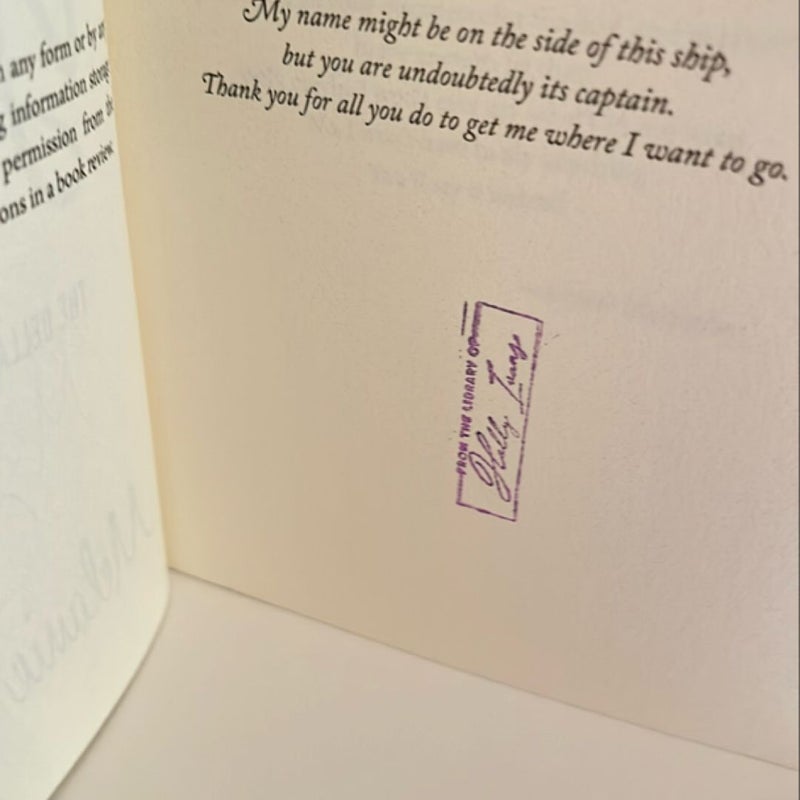 any form or by a
information storag
permission from th
ons in a book review.
My name might be on the side of this ship,
but you are undoubtedly its captain.
Thank you for all you do to get me where I want to go.
FROM THE LIBRARY OF
Holly